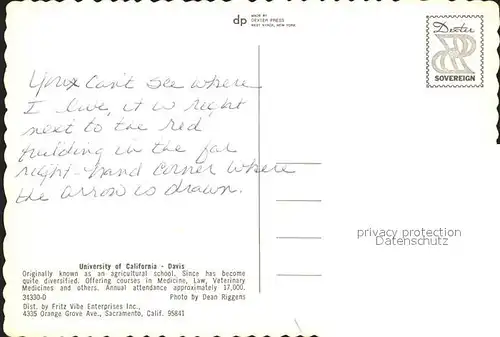 dp
MADE BY
DEXTER PRESS
WEST NYACK, NEW YORK
Dexter
SOVEREIGN
can't see where
I live, it is right
next to the red
building in the far
right-hand corner where
the arrow is drawn.
privacy protection
Datenschutz
University of California - Davis
Originally known as an agricultural school. Since has become
quite diversified. Offering courses in Medicine, Law, Veterinary
Medicines and others. Annual attendance approximately 17,000.
34330-D Photo by Dean Riggens
Dist. by Fritz Vibe Enterprises Inc.,
4335 Orange Grove Ave., Sacramento, Calif. 95841